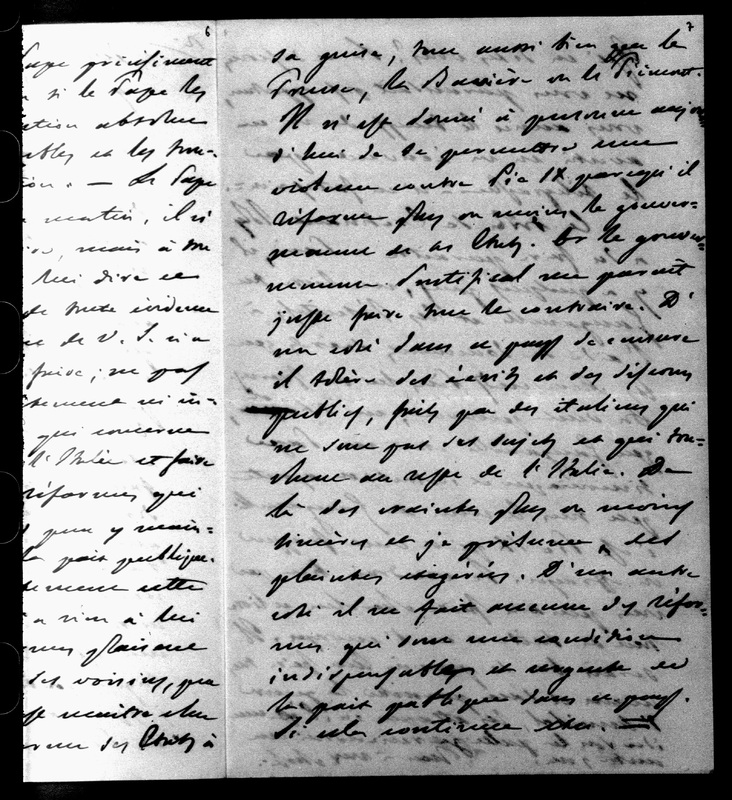 6
Pape précisément
si le Pape les
ation absolue
ables et les trou-
— Le Pape
matin, il s'
mais à son
lui dire ce
de toute évidence
de V. S. n'a
faire; ne pas
ni in-
qui concerne
l'Italie et faire
réformes qui
y main-
la paix publique.
cette
a rien à lui
plaisance
des voisins, que
maître chez
des Etats à
7
sa guise, tout aussi bien que la
Prusse, la Bavière ou le Piémont.
Il n'est donné à personne aujour-
d'hui de se permettre une
violence contre Pie IX parcequ'il
réforme plus ou moins le gouver-
nement de ses Etats. Or le gouver-
nement Pontifical me parait
juste faire tout le contraire. D'
un coté dans ce pays de censure
il tolère des écrits et des discours
publics, faits par des italiens qui
ne sont pas ses sujets et qui tou-
chent au reste de l'Italie. De
là des craintes plus ou moins
sincères et je présume, des
plaintes exagérées. D'un autre
coté il ne fait aucune des réfor-
mes qui sont une condition
indispensable et urgente de
la paix publique dans ce pays.
Si cela continue etc.